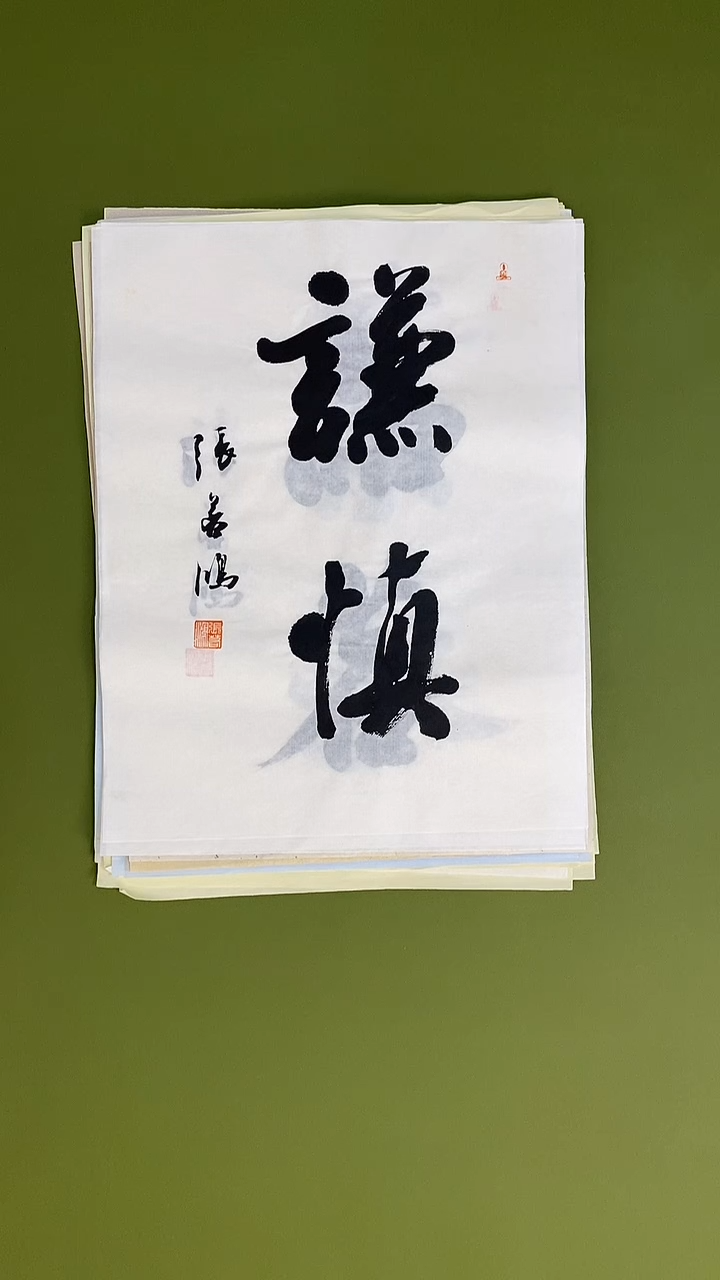 謙慎
張善鴻